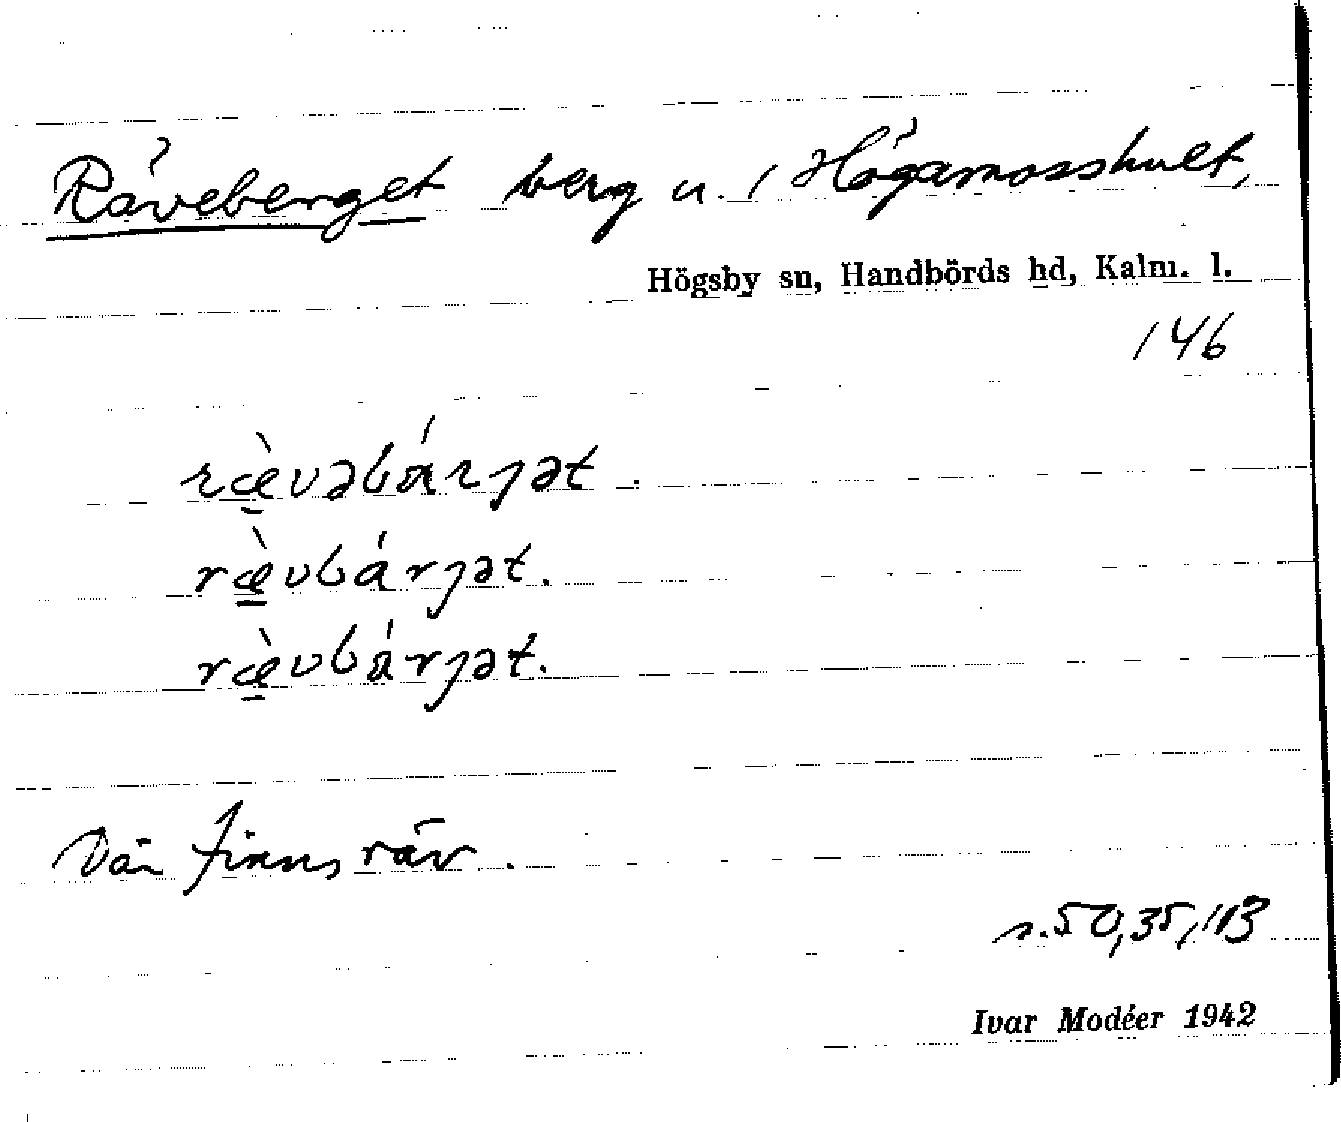 Räveberget berg u. / Högamosshult,
Högsby sn, Handbörds hd, Kalm. l.
146
ræ̀vəbárjət.
ræ̀vbárjət.
ræ̀vbárjət.
Där finns räv.
s. 50, 35, 113
Ivar Modéer 1942